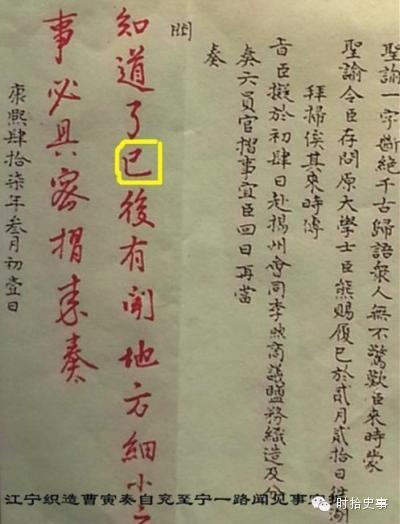 聖諭一字斷絕千古歸語衆人無不驚歎臣來時蒙
聖諭令臣存問原大學士臣熊賜履已於貳月貳拾日往
拜掃俟其來時傳
旨臣擬於初肆日赴揚州會同李煦商議鹽務織造及分
奏六員官摺事宜臣回日再當
奏
知道了已後有聞地方細小之
事必具密摺來奏
康熙肆拾柒年叁月初壹日
江宁织造曹寅奏自兖至宁一路闻见事
时拾史事